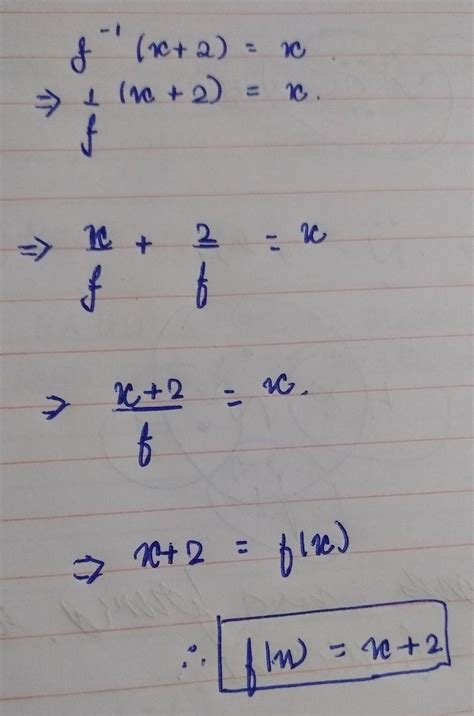 f⁻¹ (x+2) = x
⇒ 1/f (x+2) = x.
⇒ x/f + 2/f = x
⇒ x+2/f = x.
⇒ x+2 = f(x)
∴ f(x) = x+2